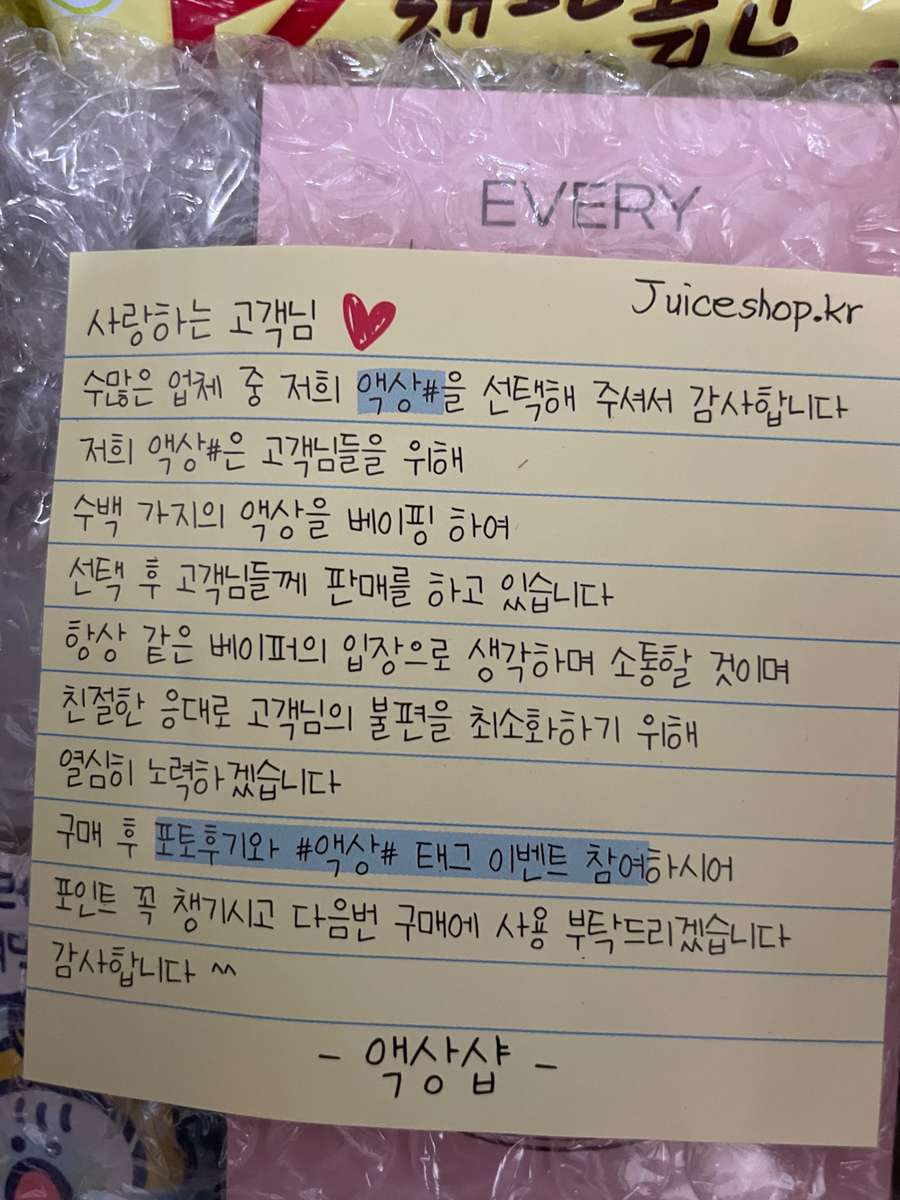 EVERY
Juiceshop.kr
사랑하는 고객님
수많은 업체 중 저희 액상#을 선택해 주셔서 감사합니다
저희 액상#은 고객님들을 위해
수백 가지의 액상을 베이핑 하여
선택 후 고객님들께 판매를 하고 있습니다
항상 같은 베이퍼의 입장으로 생각하며 소통할 것이며
친절한 응대로 고객님의 불편을 최소화하기 위해
열심히 노력하겠습니다
구매 후 포토후기와 #액상# 태그 이벤트 참여하시어
포인트 꼭 챙기시고 다음번 구매에 사용 부탁드리겠습니다
감사합니다 ^^
- 액상샵 -